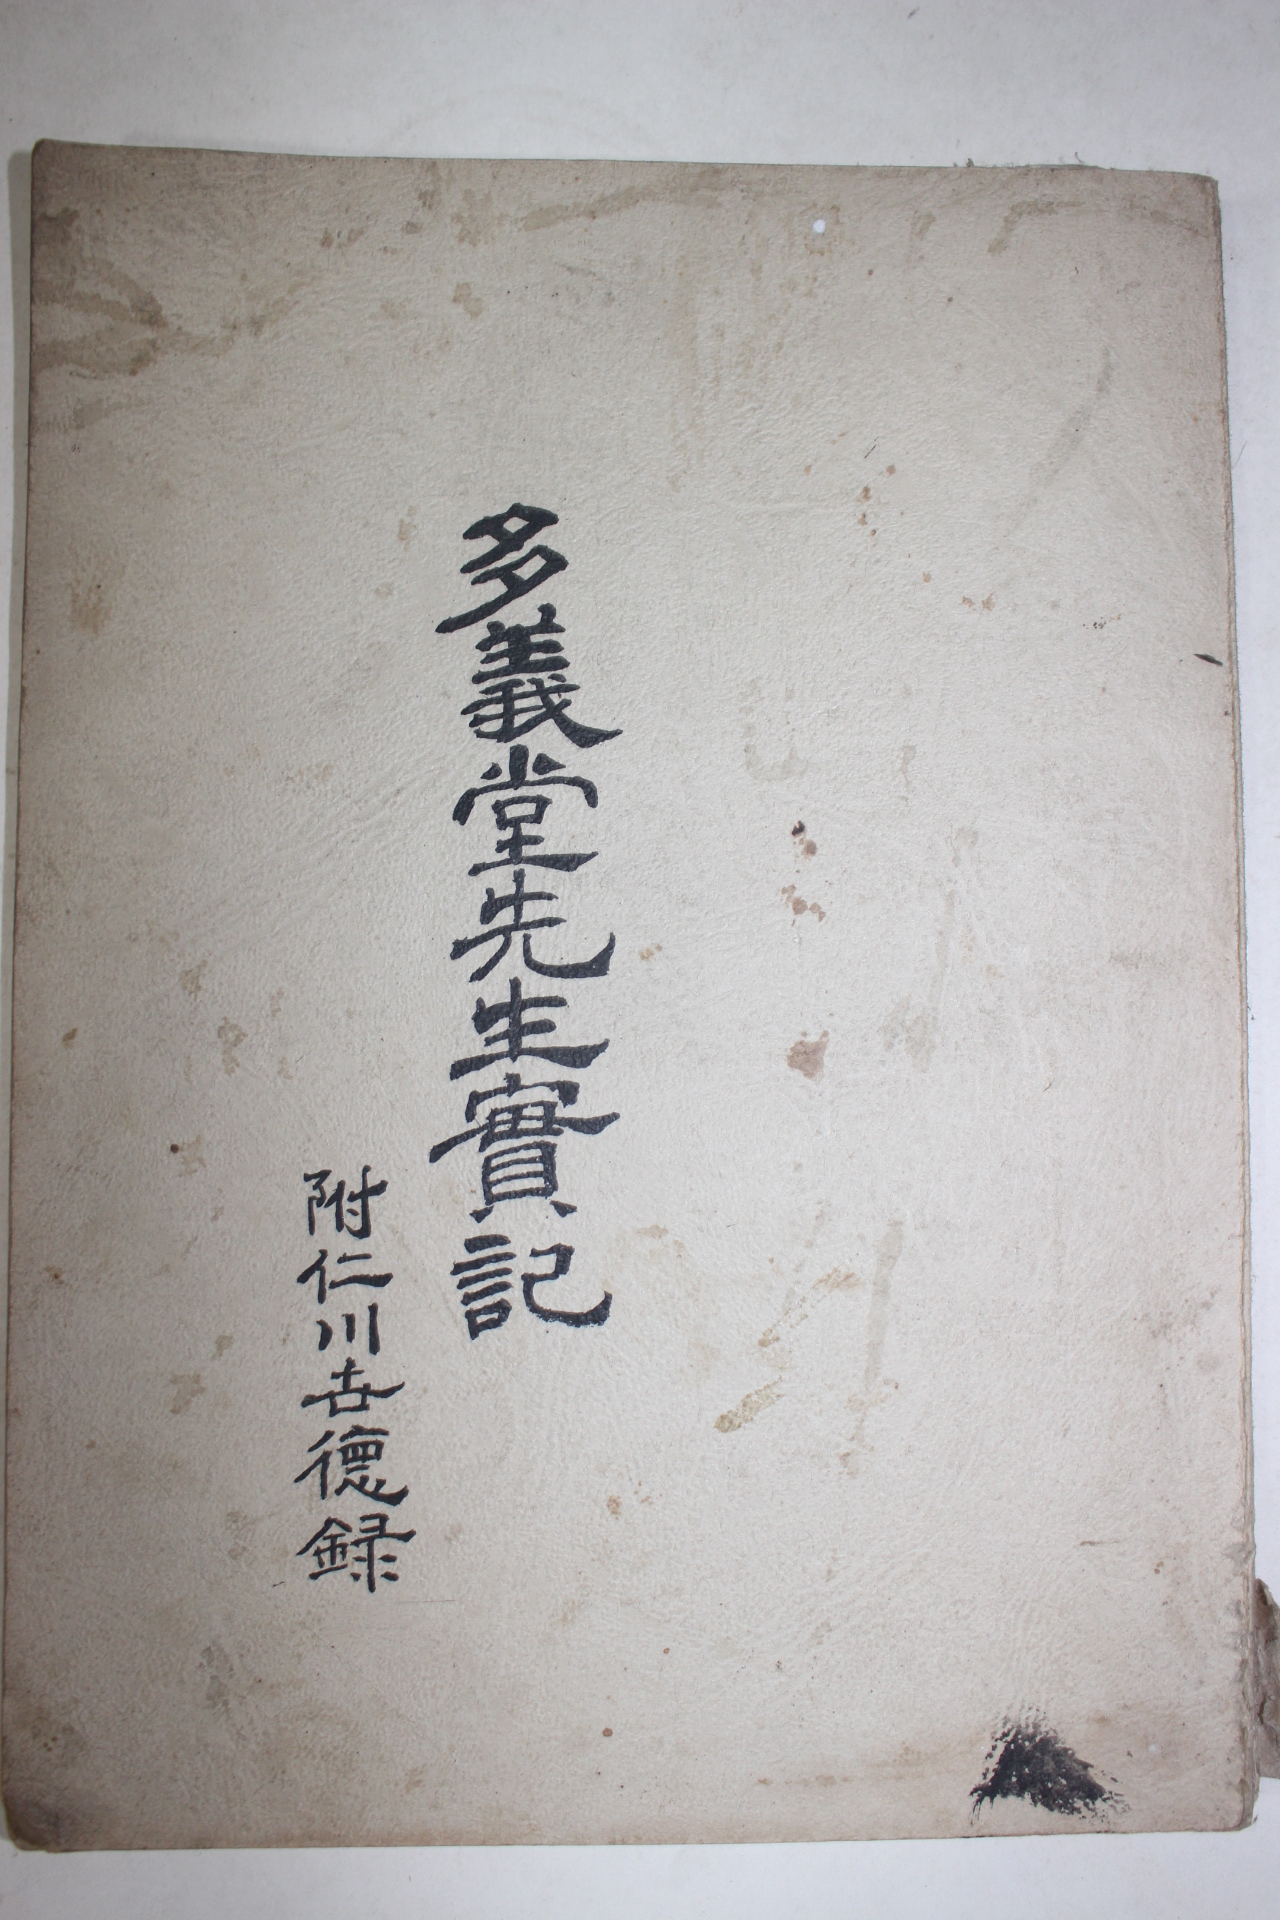 多義堂先生實記
附仁川世德錄